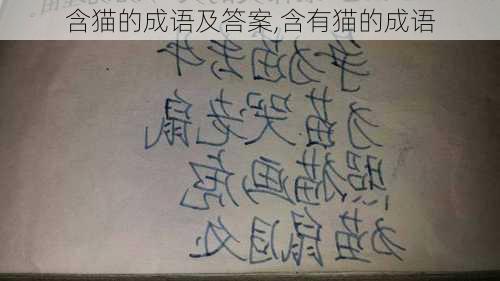 含猫的成语及答案,含有猫的成语
争猫丢牛
猫哭老鼠
照猫画虎
猫鼠同处